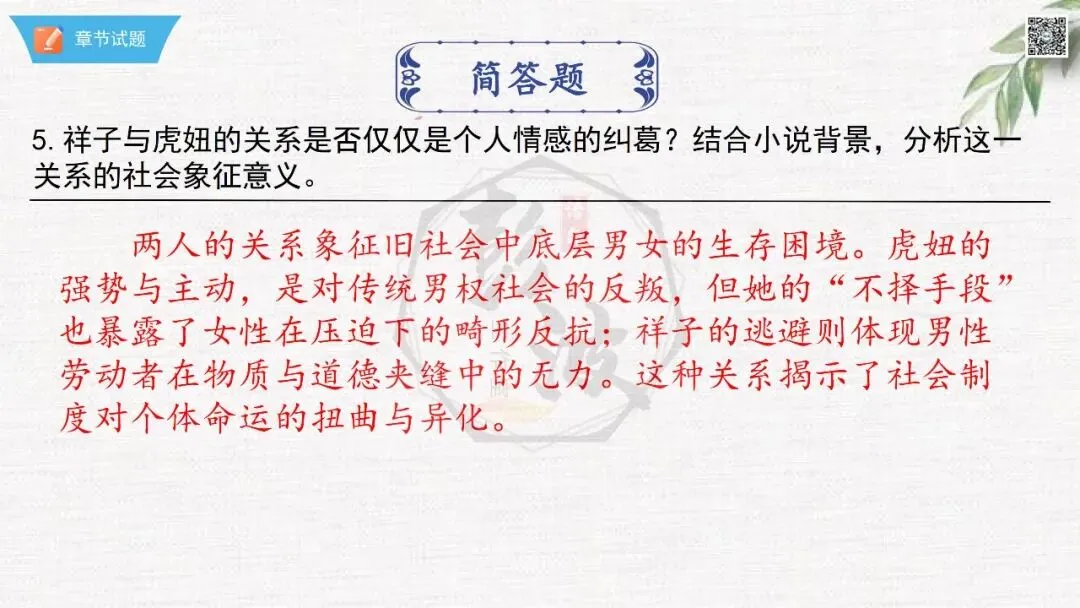 章节试题
简答题
5. 祥子与虎妞的关系是否仅仅是个人情感的纠葛？结合小说背景，分析这一
关系的社会象征意义。
两人的关系象征旧社会中底层男女的生存困境。虎妞的
强势与主动，是对传统男权社会的反叛，但她的“不择手段”
也暴露了女性在压迫下的畸形反抗；祥子的逃避则体现男性
劳动者在物质与道德夹缝中的无力。这种关系揭示了社会制
度对个体命运的扭曲与异化。